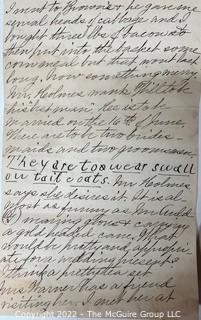 I went to Brown's & he gave me
several heads of cabbage and I
bought three lbs of bacon to
then put into the basket some
corn meal but that wont last
long. now something merry
Mr Holmes
man" He is to be
married on the 16th of June
There are to be two brides-
maids and two groomsmen.
They are to wear swall
ow tail coats. Mr Holmes
says she desires it. It is al
most as funny as
carrying
a gold headed cane. What
would be pretty and appropri
ate for a wedding present?
I think a pretty tea set
Mrs Warner has a friend
visiting her. I met her at
©2022 - Garage Sale Finds.com